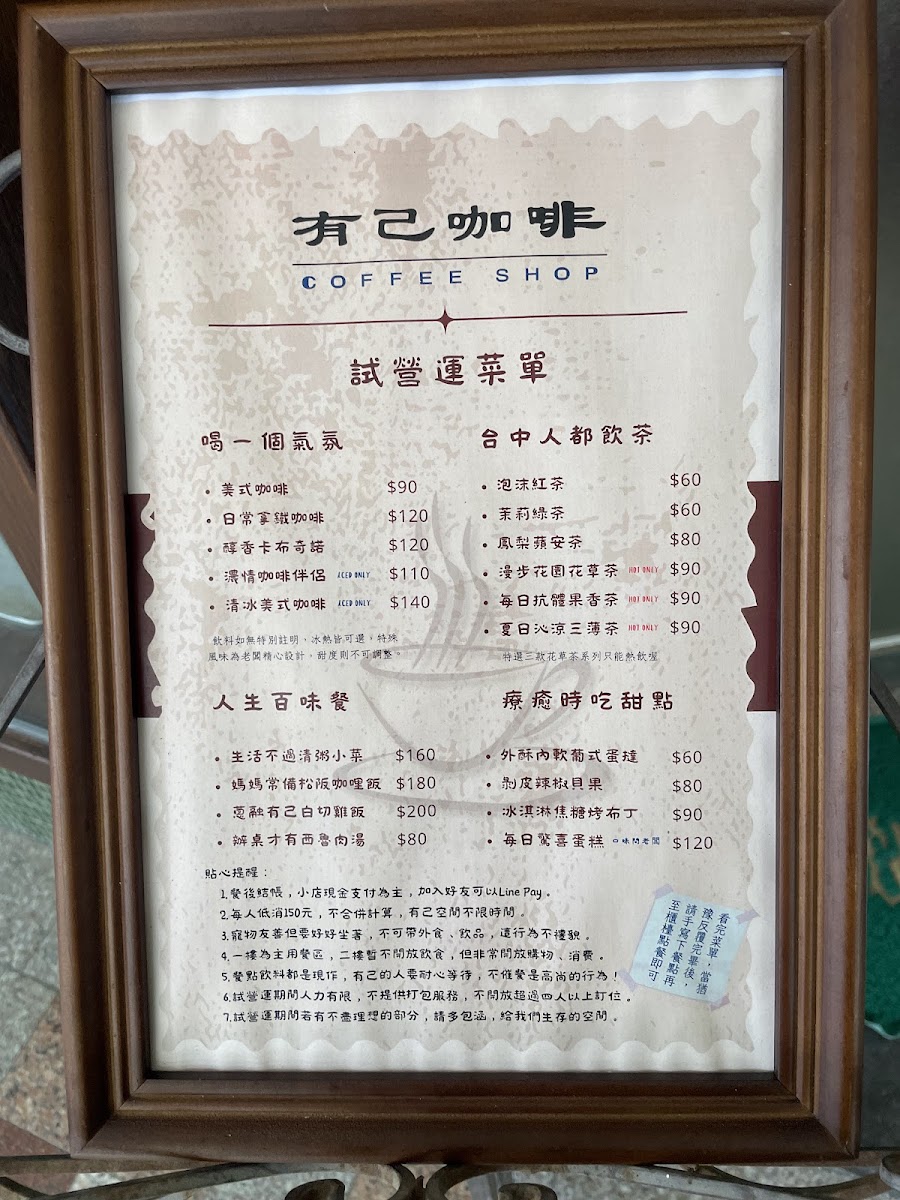 有己咖啡
COFFEE SHOP
試營運菜單
喝一個氣氛
美式咖啡 $90
日常拿鐵咖啡 $120
醇香卡布奇諾 $120
濃情咖啡伴侶 ICED ONLY $110
清冰美式咖啡 ICED ONLY $140
飲料如無特別註明，冰熱皆可選。特殊
風味為老闆精心設計，甜度則不可調整。
台中人都飲茶
泡沫紅茶 $60
茉莉綠茶 $60
鳳梨蘋安茶 $80
漫步花園花草茶 HOT ONLY $90
每日抗體果香茶 HOT ONLY $90
夏日沁涼三薄茶 HOT ONLY $90
特選三款花草茶系列只能熱飲喔
人生百味餐
生活不過清粥小菜 $160
媽媽常備松阪咖哩飯 $180
蔥融有己白切雞飯 $200
辦桌才有西魯肉湯 $80
療癒時吃甜點
外酥內軟葡式蛋撻 $60
剝皮辣椒貝果 $80
冰淇淋焦糖烤布丁 $90
每日驚喜蛋糕 口味問老闆 $120
貼心提醒：
1.餐後結帳，小店現金支付為主，加入好友可以Line Pay。
2.每人低消150元，不合併計算，有己空間不限時間。
3.寵物友善但要好好坐著，不可帶外食、飲品，這行為不禮貌。
4.一樓為主用餐區，二樓暫不開放飲食，但非常開放購物、消費。
5.餐點飲料都是現作，有己的人要耐心等待，不催餐是高尚的行為！
6.試營運期間人力有限，不提供打包服務，不開放超過四人以上訂位。
7.試營運期間若有不盡理想的部分，請多包涵，給我們生存的空間。
看完菜單，當猶
豫反覆完畢後，
請手寫下餐點再
至櫃檯點餐即可